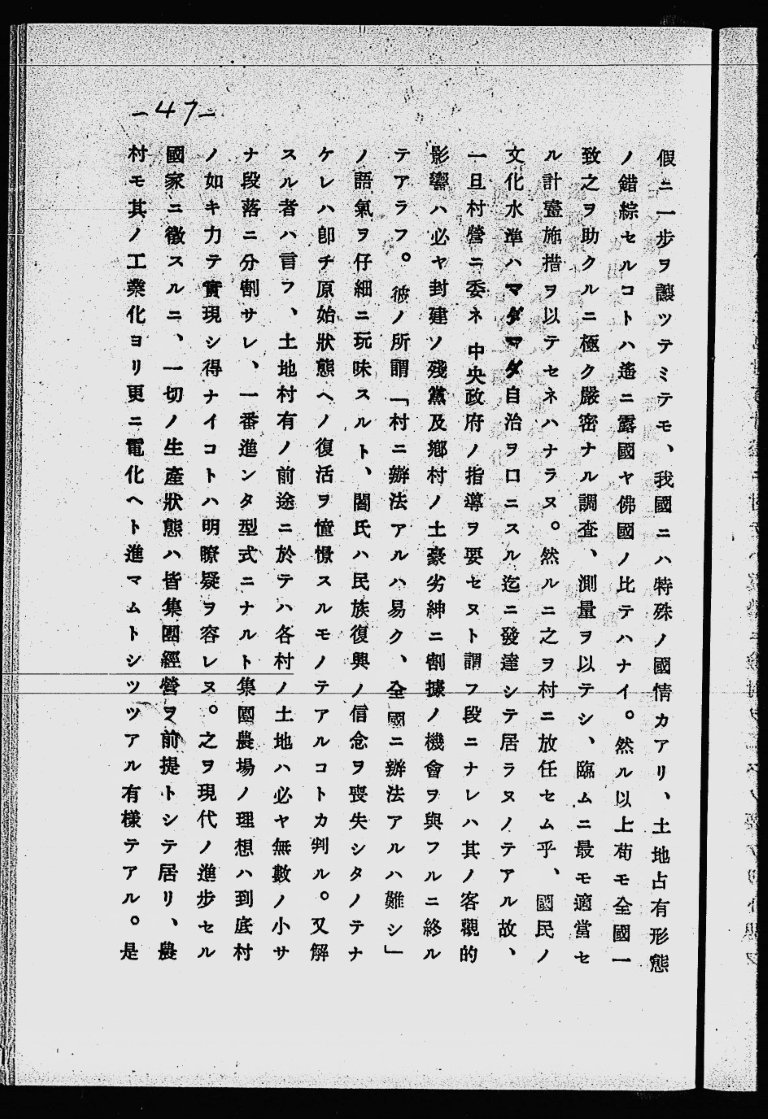 —47—
假ニ一步ヲ讓ツテミテモ、我國ニハ特殊ノ國情カアリ、土地占有形態
ノ錯綜セルコトハ遙ニ露國ヤ佛國ノ比テハナイ。然ル以上苟モ全國一
致之ヲ助クルニ極ク嚴密ナル調査、測量ヲ以テシ、臨ムニ最モ適當セ
ル計畫施措ヲ以テセネハナラヌ。然ルニ之ヲ村ニ放任セム乎、國民ノ
文化水準ハマダマダ自治ヲ口ニスル迄ニ發達シテ居ラヌノテアル故、
一旦村營ニ委ネ中央政府ノ指導ヲ要セヌト謂フ段ニナレハ其ノ客觀的
影響ハ必ヤ封建ノ殘黨及鄕村ノ土豪劣紳ニ割據ノ機會ヲ與フルニ終ル
テアラフ。彼ノ所謂「村ニ辦法アルハ易ク、全國ニ辦法アルハ難シ」
ノ語氣ヲ仔細ニ玩味スルト、閻氏ハ民族復興ノ信念ヲ喪失シタノテナ
ケレハ卽チ原始狀態ヘノ復活ヲ憧憬スルモノテアルコトカ判ル。又解
スル者ハ言フ、土地村有ノ前途ニ於テハ各村ノ土地ハ必ヤ無數ノ小サ
ナ段落ニ分割サレ、一番進ンタ型式ニナルト集團農場ノ理想ハ到底村
ノ如キ力テ實現シ得ナイコトハ明瞭疑ヲ容レヌ。之ヲ現代ノ進步セル
國家ニ徵スルニ、一切ノ生產狀態ハ皆集團經營ヲ前提トシテ居リ、農
村モ其ノ工業化ヨリ更ニ電化ヘト進マムトシツツアル有樣テアル。是